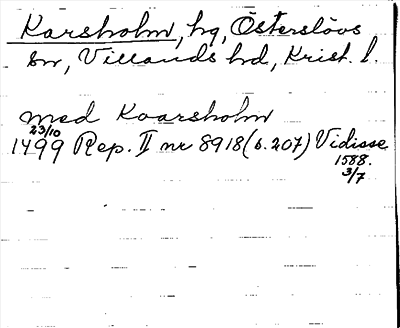 Karsholm, hg, Österslövs
sn, Villands hd, Krist. l.
med Koarsholm
23/10
1499 Rep. II nr 8918 (s. 207) Vidisse
1588.
3/7